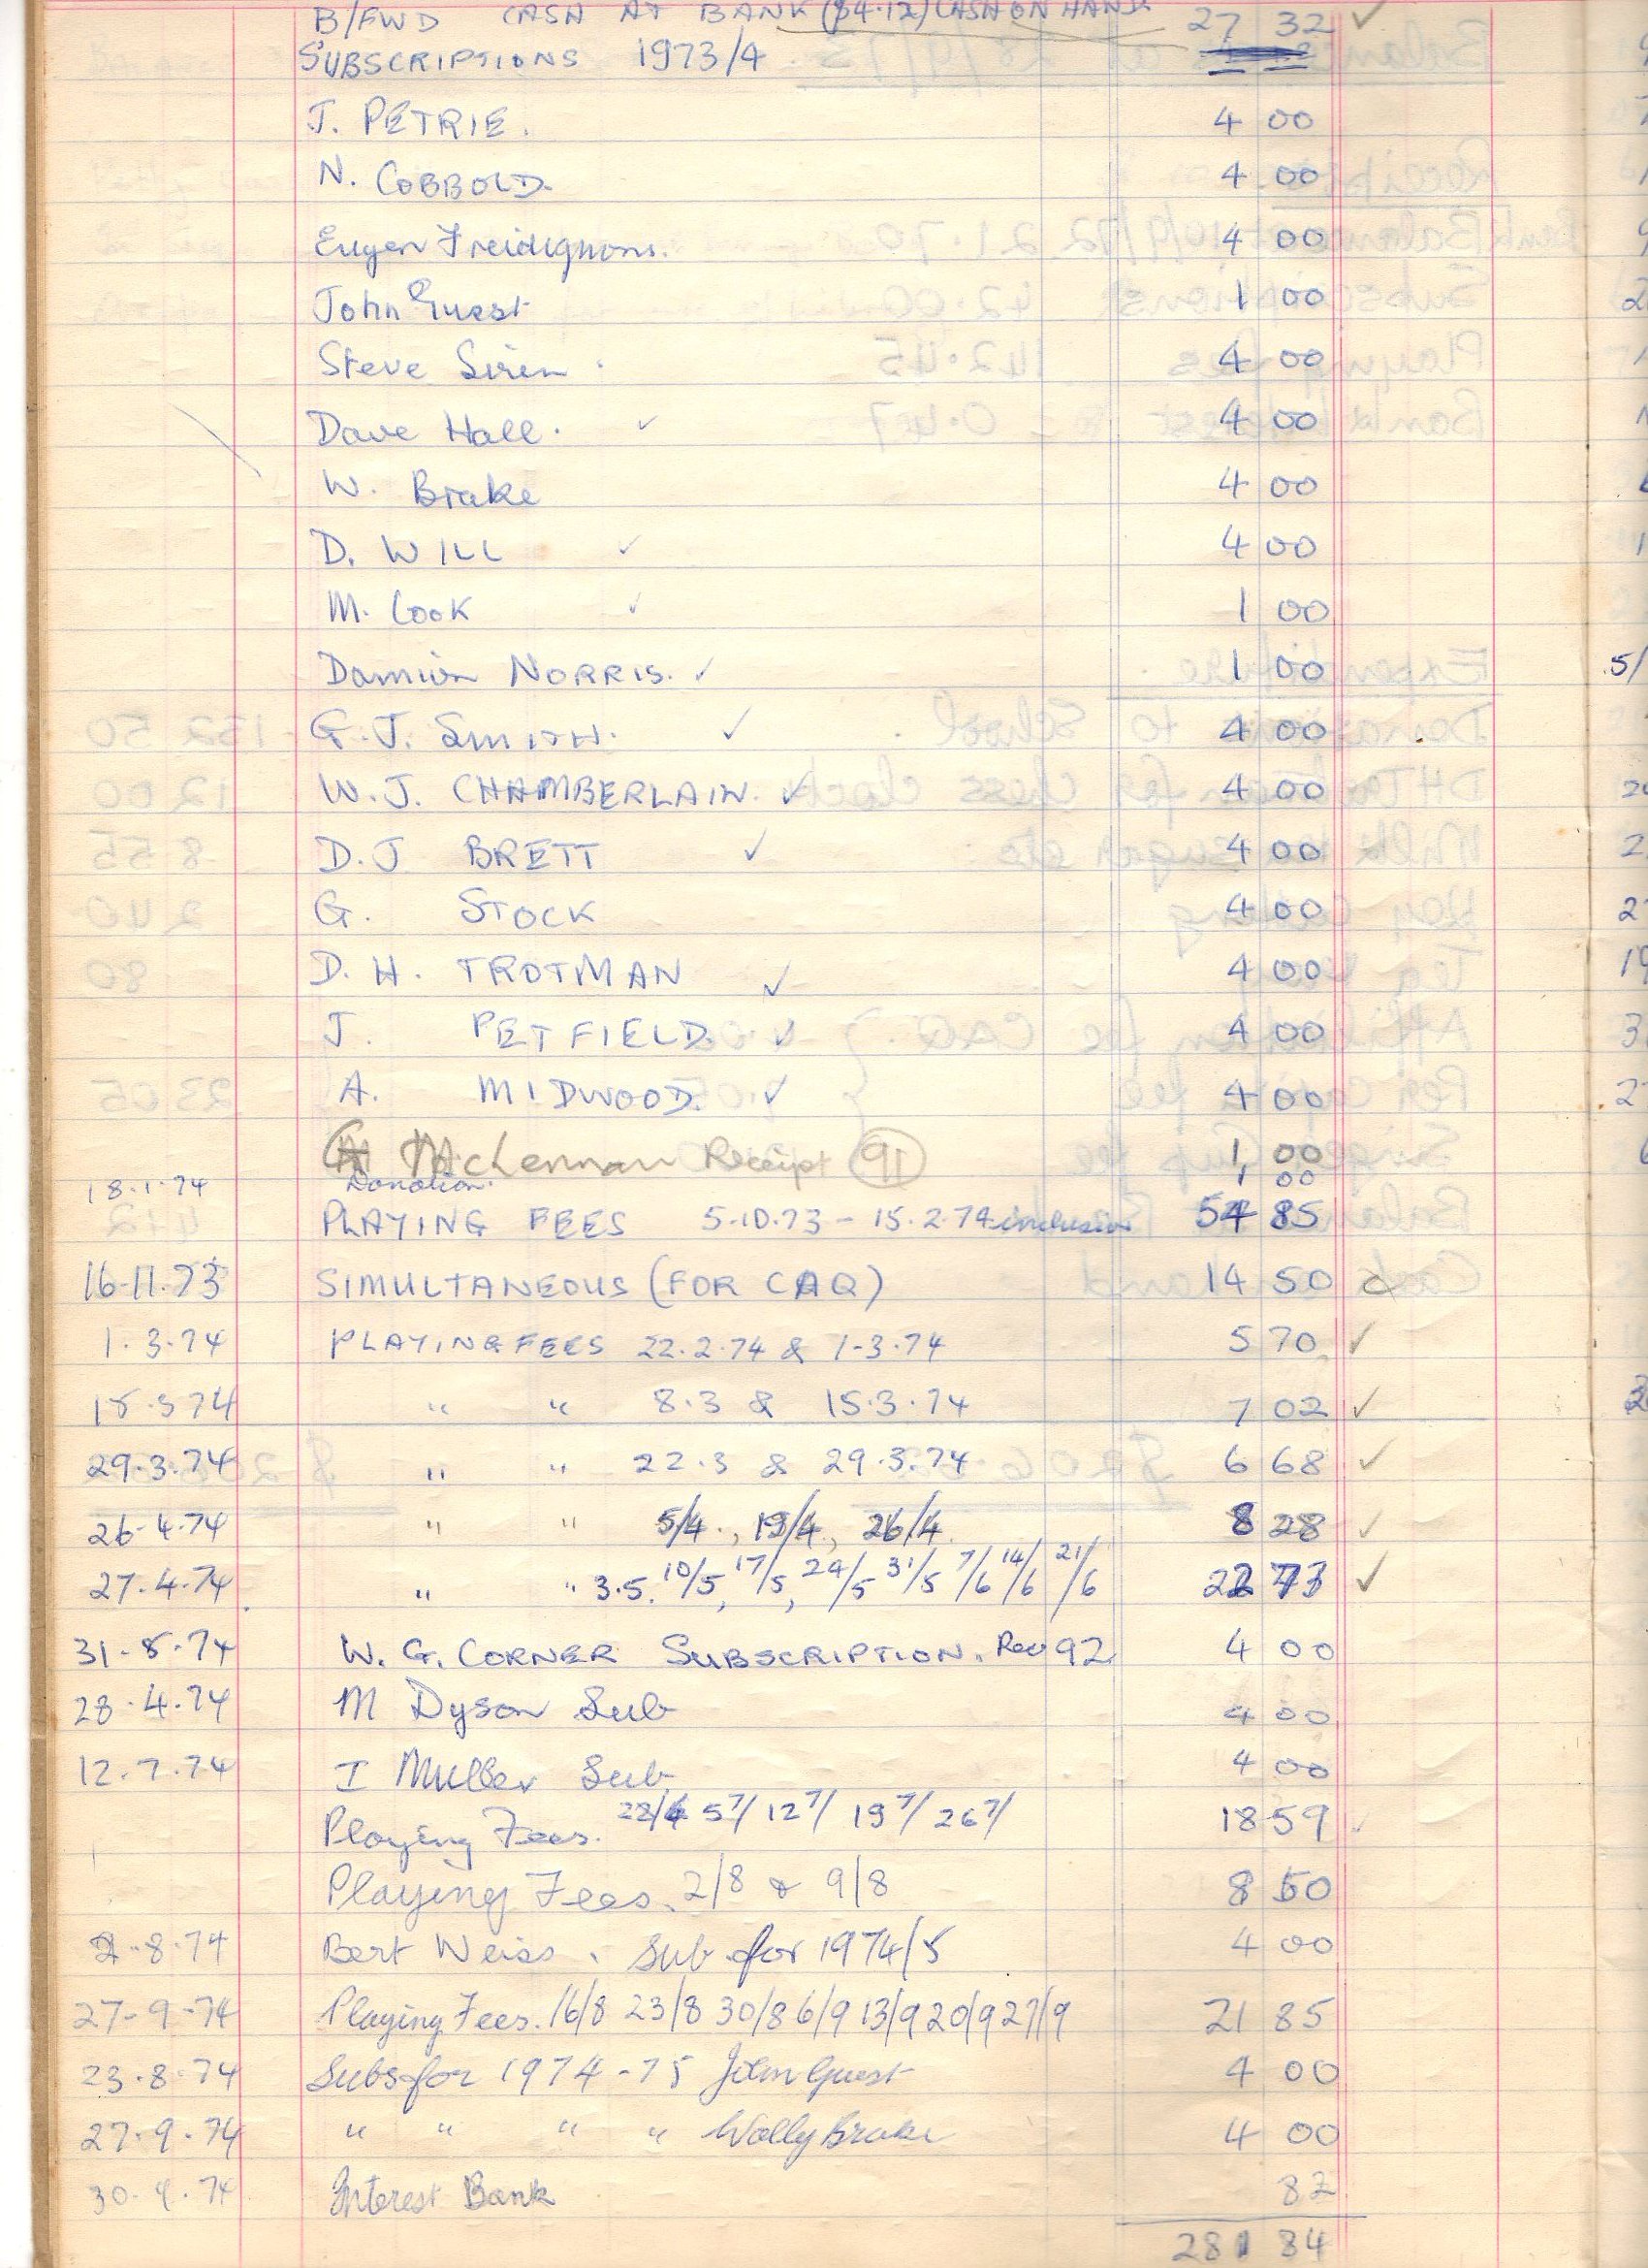 B/FWD CASH AT BANK ($4.12) CASH ON HAND 27 32 ✓
SUBSCRIPTIONS 1973/4
J. PETRIE. 4 00
N. COBBOLD. 4 00
Eugen Freidignons. 4 00
John Guest 1 00
Steve Siren. 4 00
Dave Hall. ✓ 4 00
W. Brake 4 00
D. WILL ✓ 4 00
M. Cook ✓ 1 00
Damien NORRIS. ✓ 1 00
G. J. SMITH. ✓ 4 00
W. J. CHAMBERLAIN. ✓ 4 00
D. J BRETT ✓ 4 00
G. STOCK 4 00
D. H. TROTMAN ✓ 4 00
J. PETFIELD. ✓ 4 00
A. MIDWOOD. ✓ 4 00
McLennan Receipt 91 1 00
18.1.74 Donation. 1 00
PLAYING FEES 5.10.73 - 15.2.74 inclusive 54 85
16.11.73 SIMULTANEOUS (FOR CAQ) 14 50
1.3.74 PLAYING FEES 22.2.74 & 1-3.74 5 70 ✓
15.3 74 " " 8.3 & 15.3.74 7 02 ✓
29.3.74 " " 22.3 & 29.3.74 6 68 ✓
26.4.74 " " 5/4., 19/4, 26/4. 8 28 ✓
27.4.74 " " 3.5. 10/5, 17/5, 24/5 31/5 7/6 14/6 21/6 22 73 ✓
31-5.74 W. G. CORNER SUBSCRIPTION. Rec 92 4 00
28.4.74 M Dyson Sub 4 00
12.7.74 I Muller Sub 4 00
Playing Fees. 28/6 5 7/ 12 7/ 19 7/ 26 7/ 18 59
Playing Fees. 2/8 & 9/8 8 50
2.8.74 Bert Weiss. Sub for 1974/5 4 00
27-9-74 Playing Fees. 16/8 23/8 30/8 6/9 13/9 20/9 27/9 21 85
23.8.74 Subs for 1974-75 John Guest 4 00
27.9.74 " " " " Wally Brake 4 00
30.9.74 Interest Bank 82
281 84